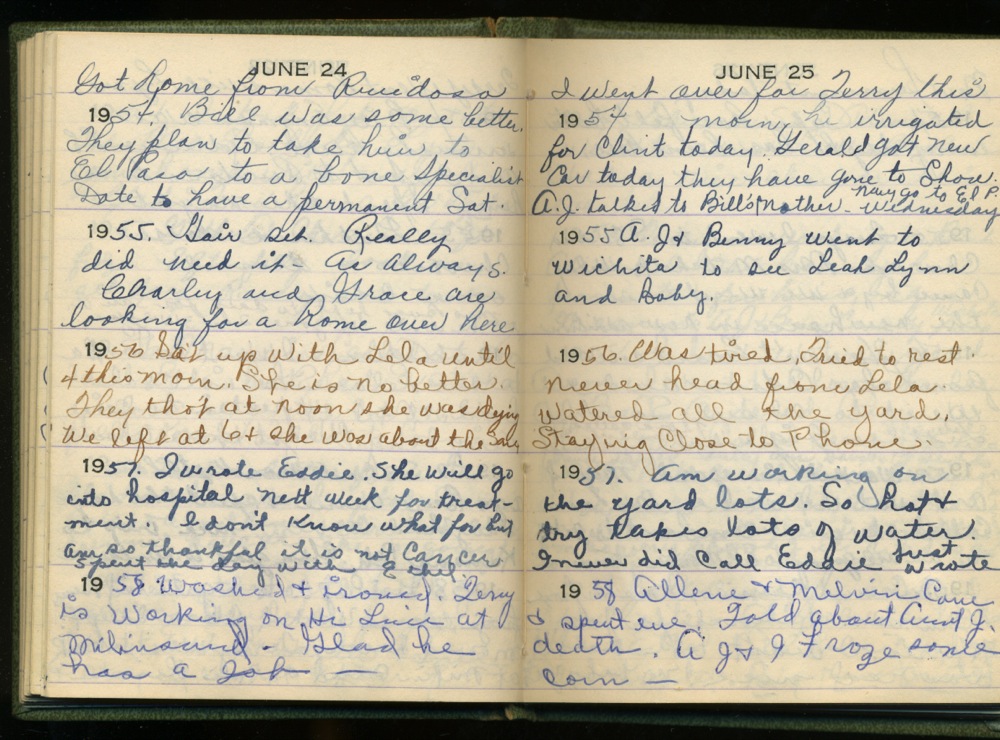 JUNE 24
Got home from Ruidoso
1954. Bill was some better.
They plan to take him to
El Paso to a bone specialist
Date to have a permanent Sat.
1955. Hair set. Really
did need it - as always.
Charley and Grace are
looking for a home over here
1956 Sat up with Lela until
4 this morn. She is no better.
They tho't at noon she was dying
We left at 6 & she was about the same
1957. I wrote Eddie. She will go
into hospital next week for treat-
ment. I don't know what for but
am so thankful it is not Cancer
Spent the day with Ethel
1958 Washed & ironed. Terry
is working on Hi Line at
Milnsand. - Glad he
has a job —
JUNE 25
I went over for Terry this
1954 morn, he irrigated
for Clint today. Gerald got new
Car today they have gone to Show.
A.J. talked to Bill's Mother - may go to El P.
Wednesday
1955 A.J & Benny went to
Wichita to see Leah Lynn
and Baby.
1956. Was tired. Tried to rest.
never head from Lela.
watered all the yard.
Staying Close to Phone.
1957. am working on
the yard lots. So hot &
dry takes lots of water.
I never did Call Eddie Just wrote
1958 Allene & Melvin Came
& spent eve. Told about Aunt J.
death. A J & I Froze some
corn —